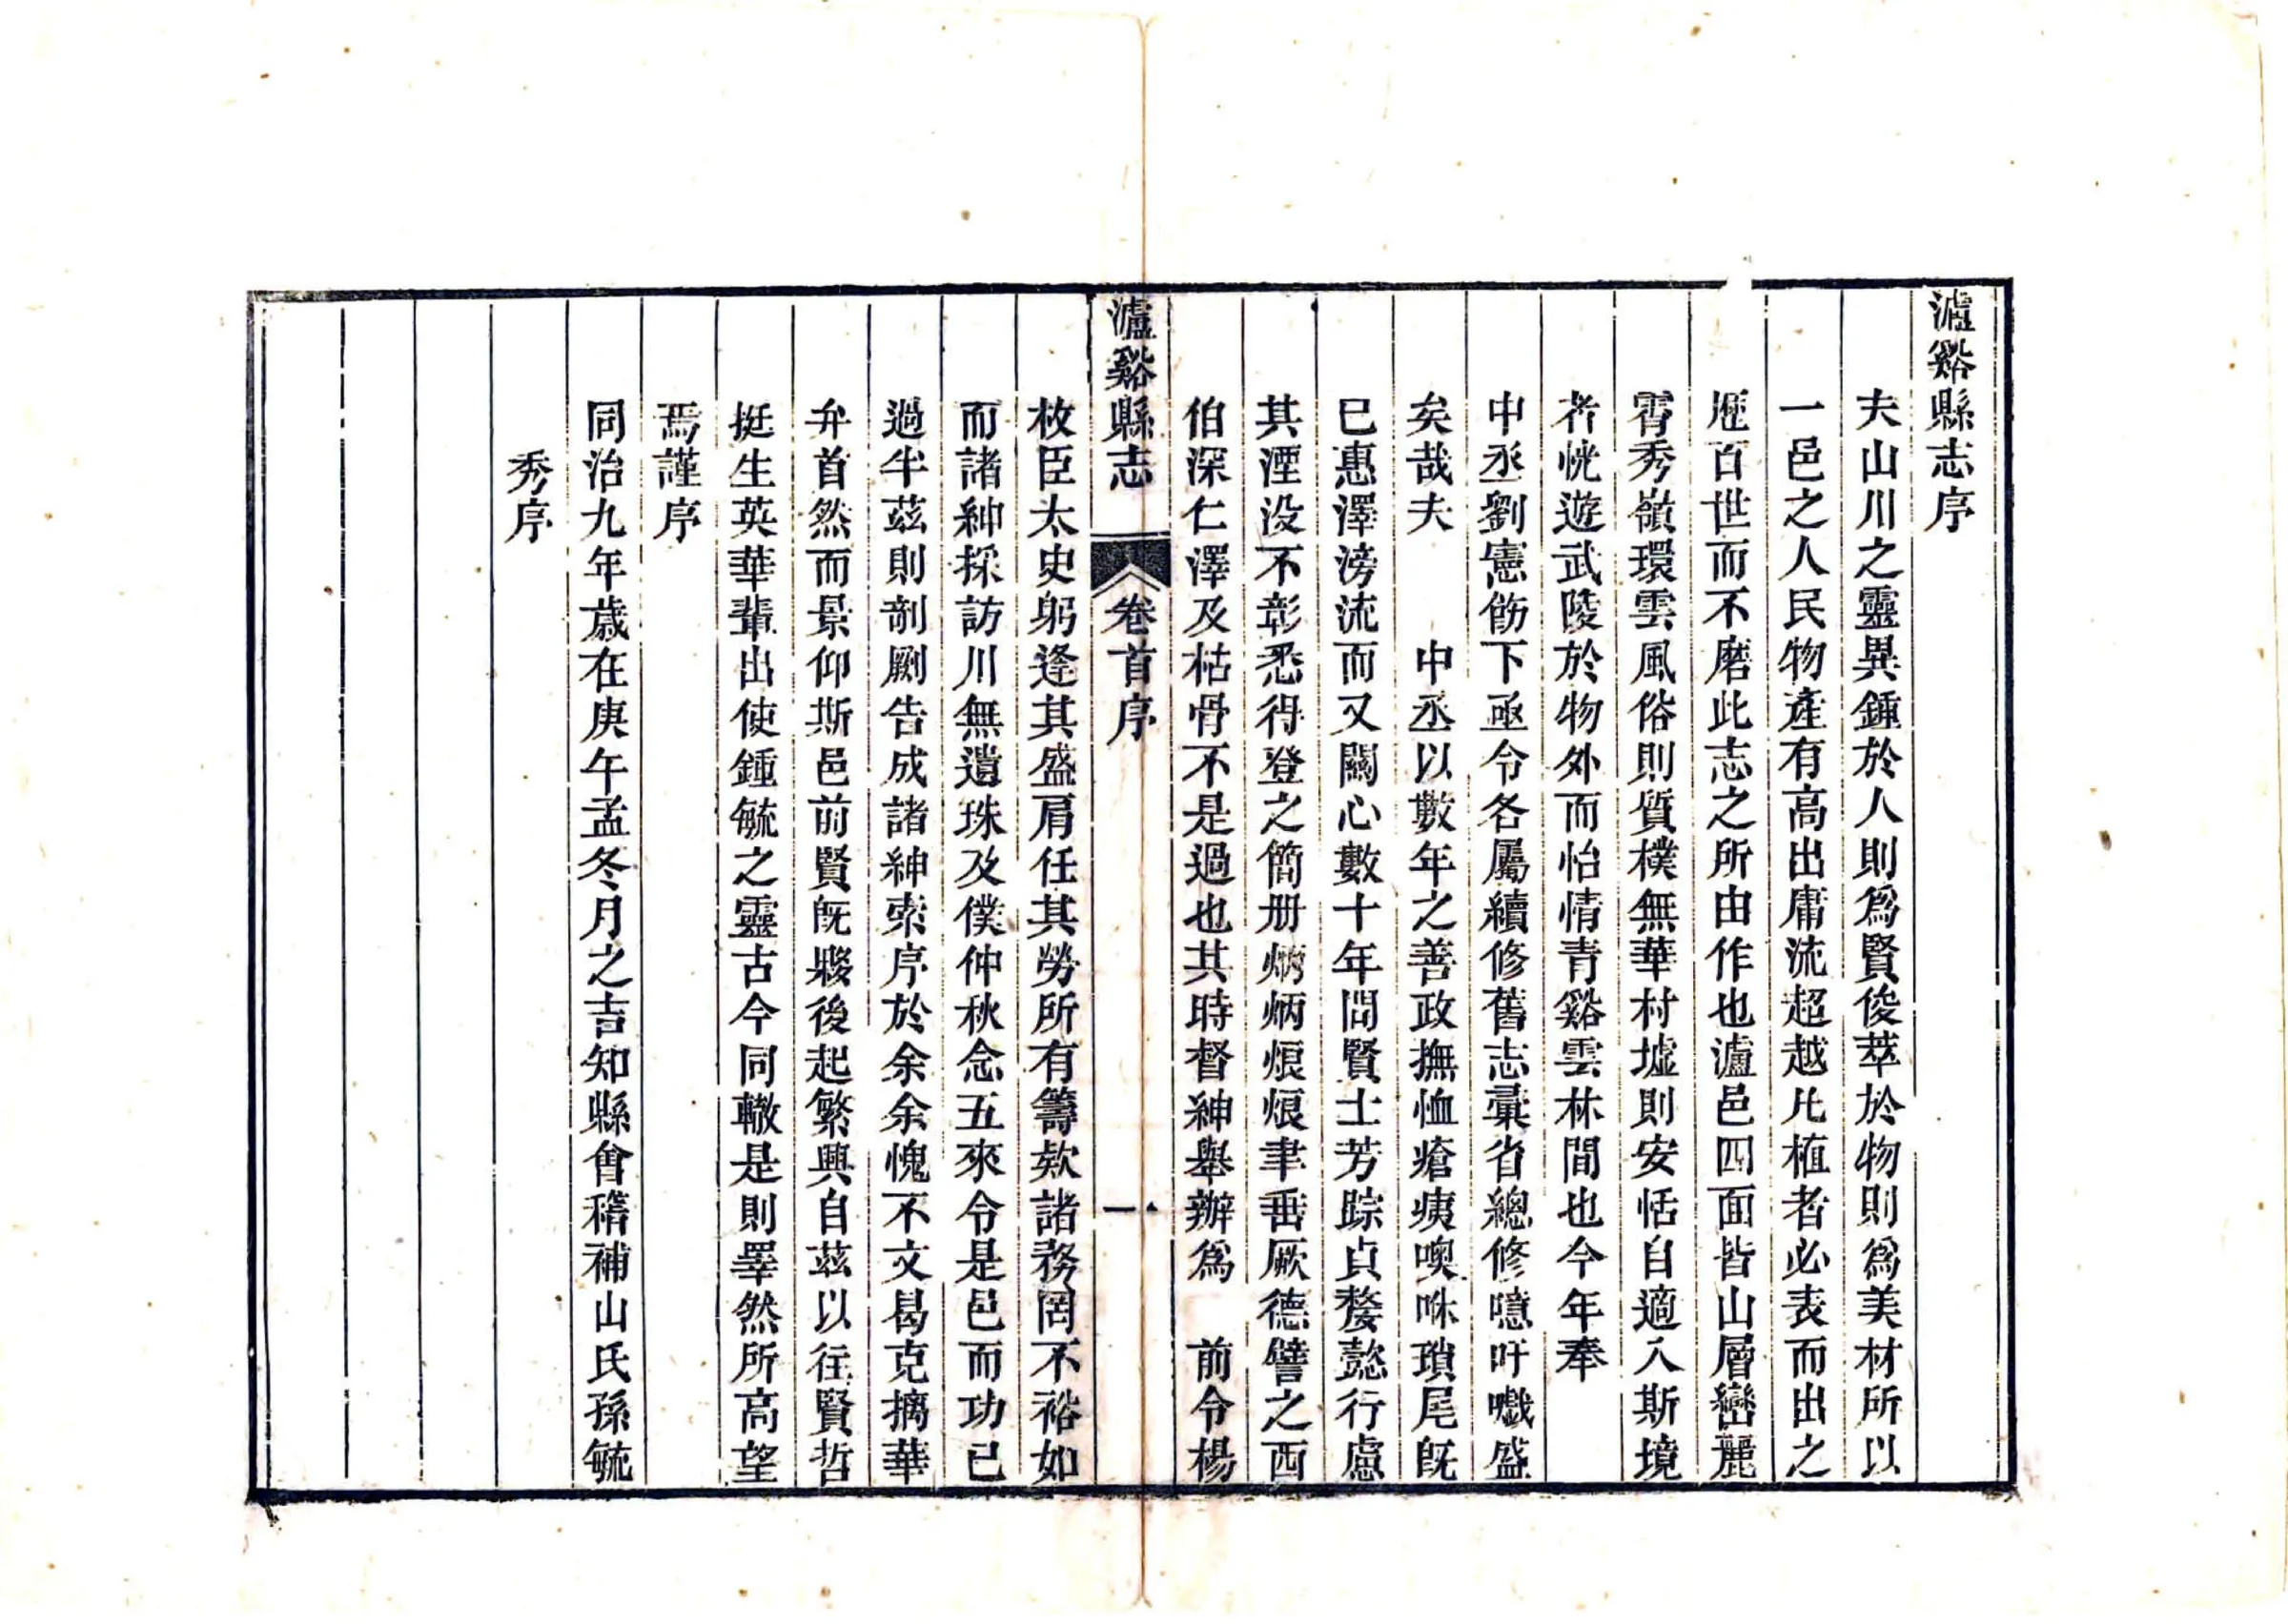 瀘谿縣志序
夫山川之靈異鍾於人則爲賢俊萃於物則爲美材所以
一邑之人民物產有高出庸流超越凡植者必表而出之
歷百世而不磨此志之所由作也瀘邑四面皆山層巒麗
霄秀嶺環雲風俗則質樸無華村墟則安恬自適入斯境
者恍遊武陵於物外而怡情青谿雲林間也今年奉
中丞劉憲飭下亟令各屬續修舊志彙省總修噫吁嚱盛
矣哉夫　中丞以數年之善政撫恤瘡痍噢咻瑣尾旣
已惠澤滂流而又關心數十年間賢士芳踪貞嫠懿行慮
其湮没不彰悉得登之簡册炳炳烺烺聿垂厥德譬之西
伯深仁澤及枯骨不是過也其時督紳舉辦爲　前令楊
瀘谿縣志　卷首序　一
枚臣太史躬逢其盛肩任其勞所有籌欵諸務罔不裕如
而諸紳採訪川無遺珠及僕仲秋念五來令是邑而功已
過半茲則剞劂告成諸紳索序於余余愧不文曷克摛華
弁首然而景仰斯邑前賢旣㱔後起繁興自茲以往賢哲
挺生英華輩出使鍾毓之靈古今同轍是則睪然所高望
焉謹序
同治九年歲在庚午孟冬月之吉知縣會稽補山氏孫毓
秀序